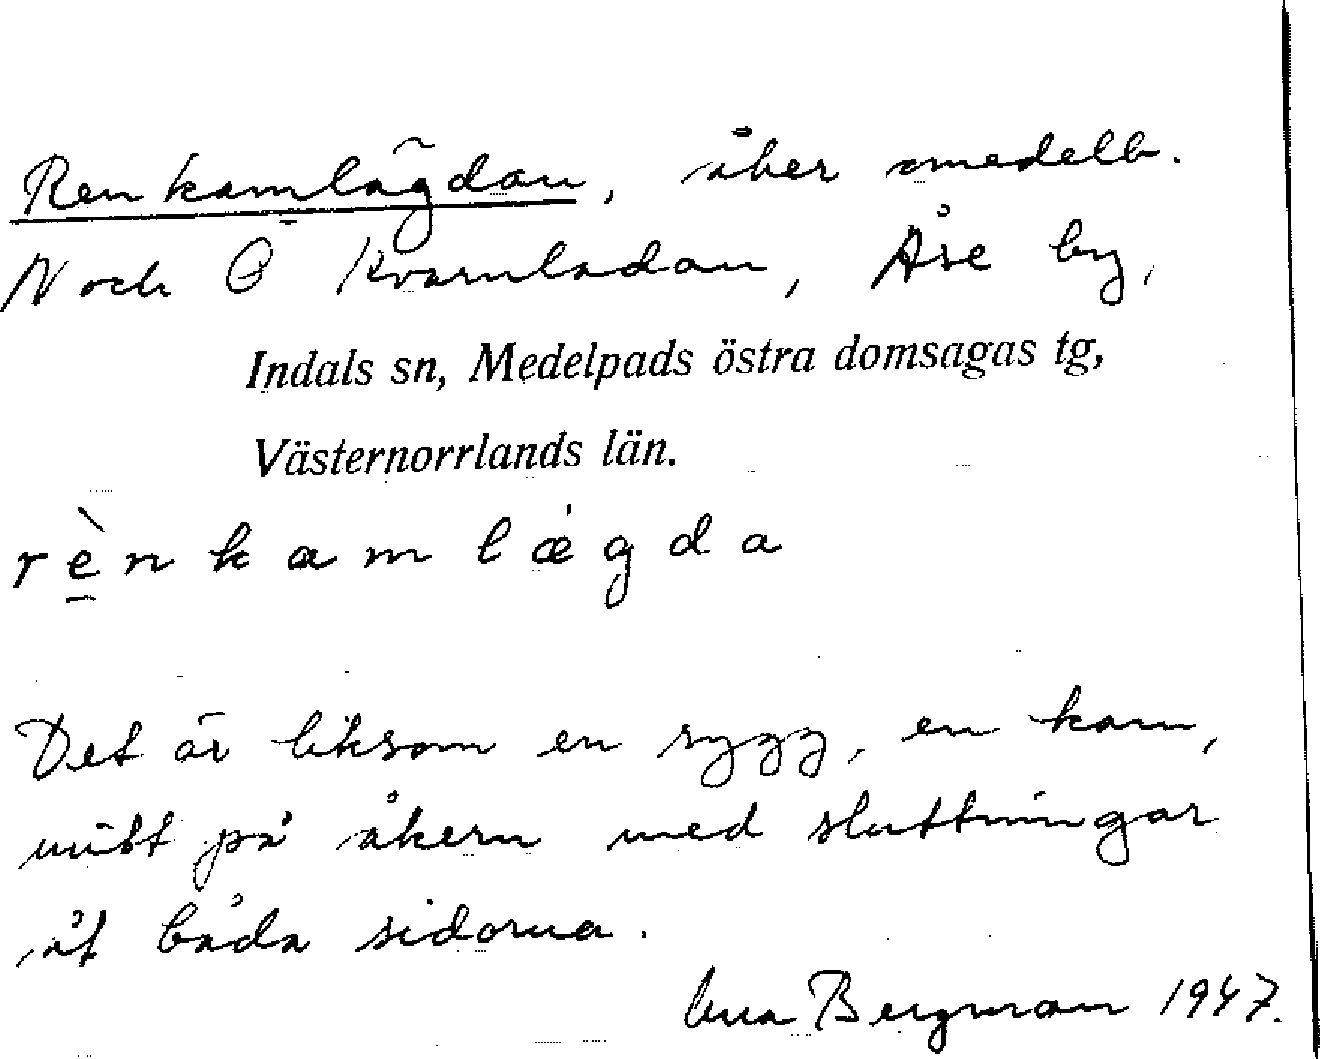 Renkamlägdan, åker omedelb.
N och Ö Kvarnladan, Åse by,
Indals sn, Medelpads östra domsagas tg,
Västernorrlands län.
rè̠nkamlǽgda
Det är liksom en rygg, en kam,
mitt på åkern med sluttningar
åt båda sidorna.
Bergman 1947.